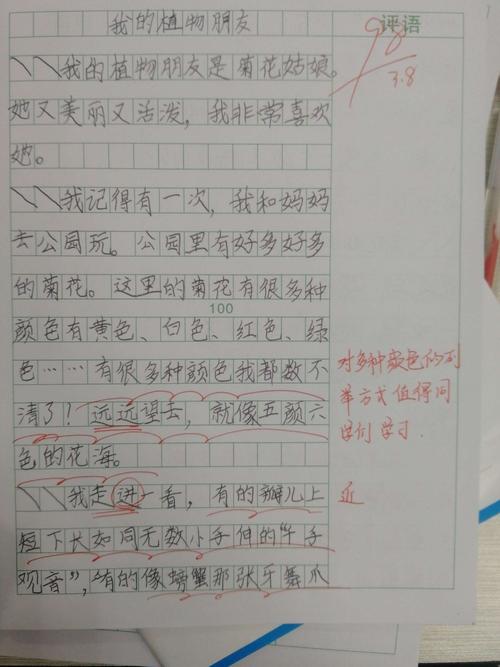 我的植物朋友
评语
98
3.8
我的植物朋友是菊花姑娘。
她又美丽又活泼，我非常喜欢
她。
我记得有一次，我和妈妈
去公园玩。公园里有好多好多
的菊花。这里的菊花有很多种
100
颜色有黄色、白色、红色、绿
色……有很多种颜色我都数不
清了！远远望去，就像五颜六
色的花海。
对多种颜色的列
举方式值得同
学们学习.
我走进一看，有的瓣儿上
近
短下长如同无数小手伸的“千手
观音”，“有的像螃蟹那张牙舞爪